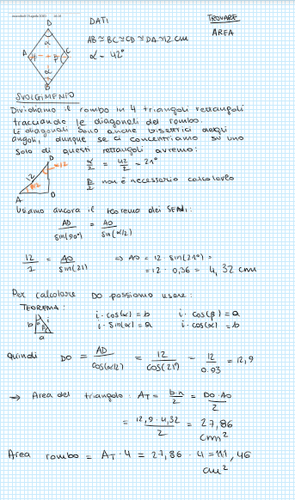 DATI
TROVARE
AB ≅ BC ≅ CD ≅ DA = 12 cm
AREA
α = 42°
D
α
A
H
β
C
α
B
SVOLGIMENTO
Dividiamo il rombo in 4 triangoli rettangoli
tracciando le diagonali del rombo.
Le diagonali sono anche bisettrici degli
angoli, dunque se ci concentriamo su uno
solo di questi rettangoli avremo:
D
α/2
12
A
O
α/2 = 42/2 = 21°
β/2 non è necessario calcolarlo
Usiamo ancora il teorema dei SENI:
AD/sin(90°) = AO/sin(α/2)
12/2 = AO/sin(21) ⇒ AO = 12 sin(21°) =
= 12 · 0,36 = 4,32 cm
Per calcolare DO possiamo usare:
TEOREMA:
b
i
a
i · cos(α) = b i · cos(β) = a
i · sin(α) = a i · cos(α) = b
quindi DO = AD/cos(α/2) = 12/cos(21°) = 12/0.93 = 12,9
→ Area del triangolo: AT = b·h/2 = DO·AO/2
= 12,9 · 4,32/2 = 27,86 cm²
Area rombo = AT · 4 = 27,86 · 4 = 111,46 cm²